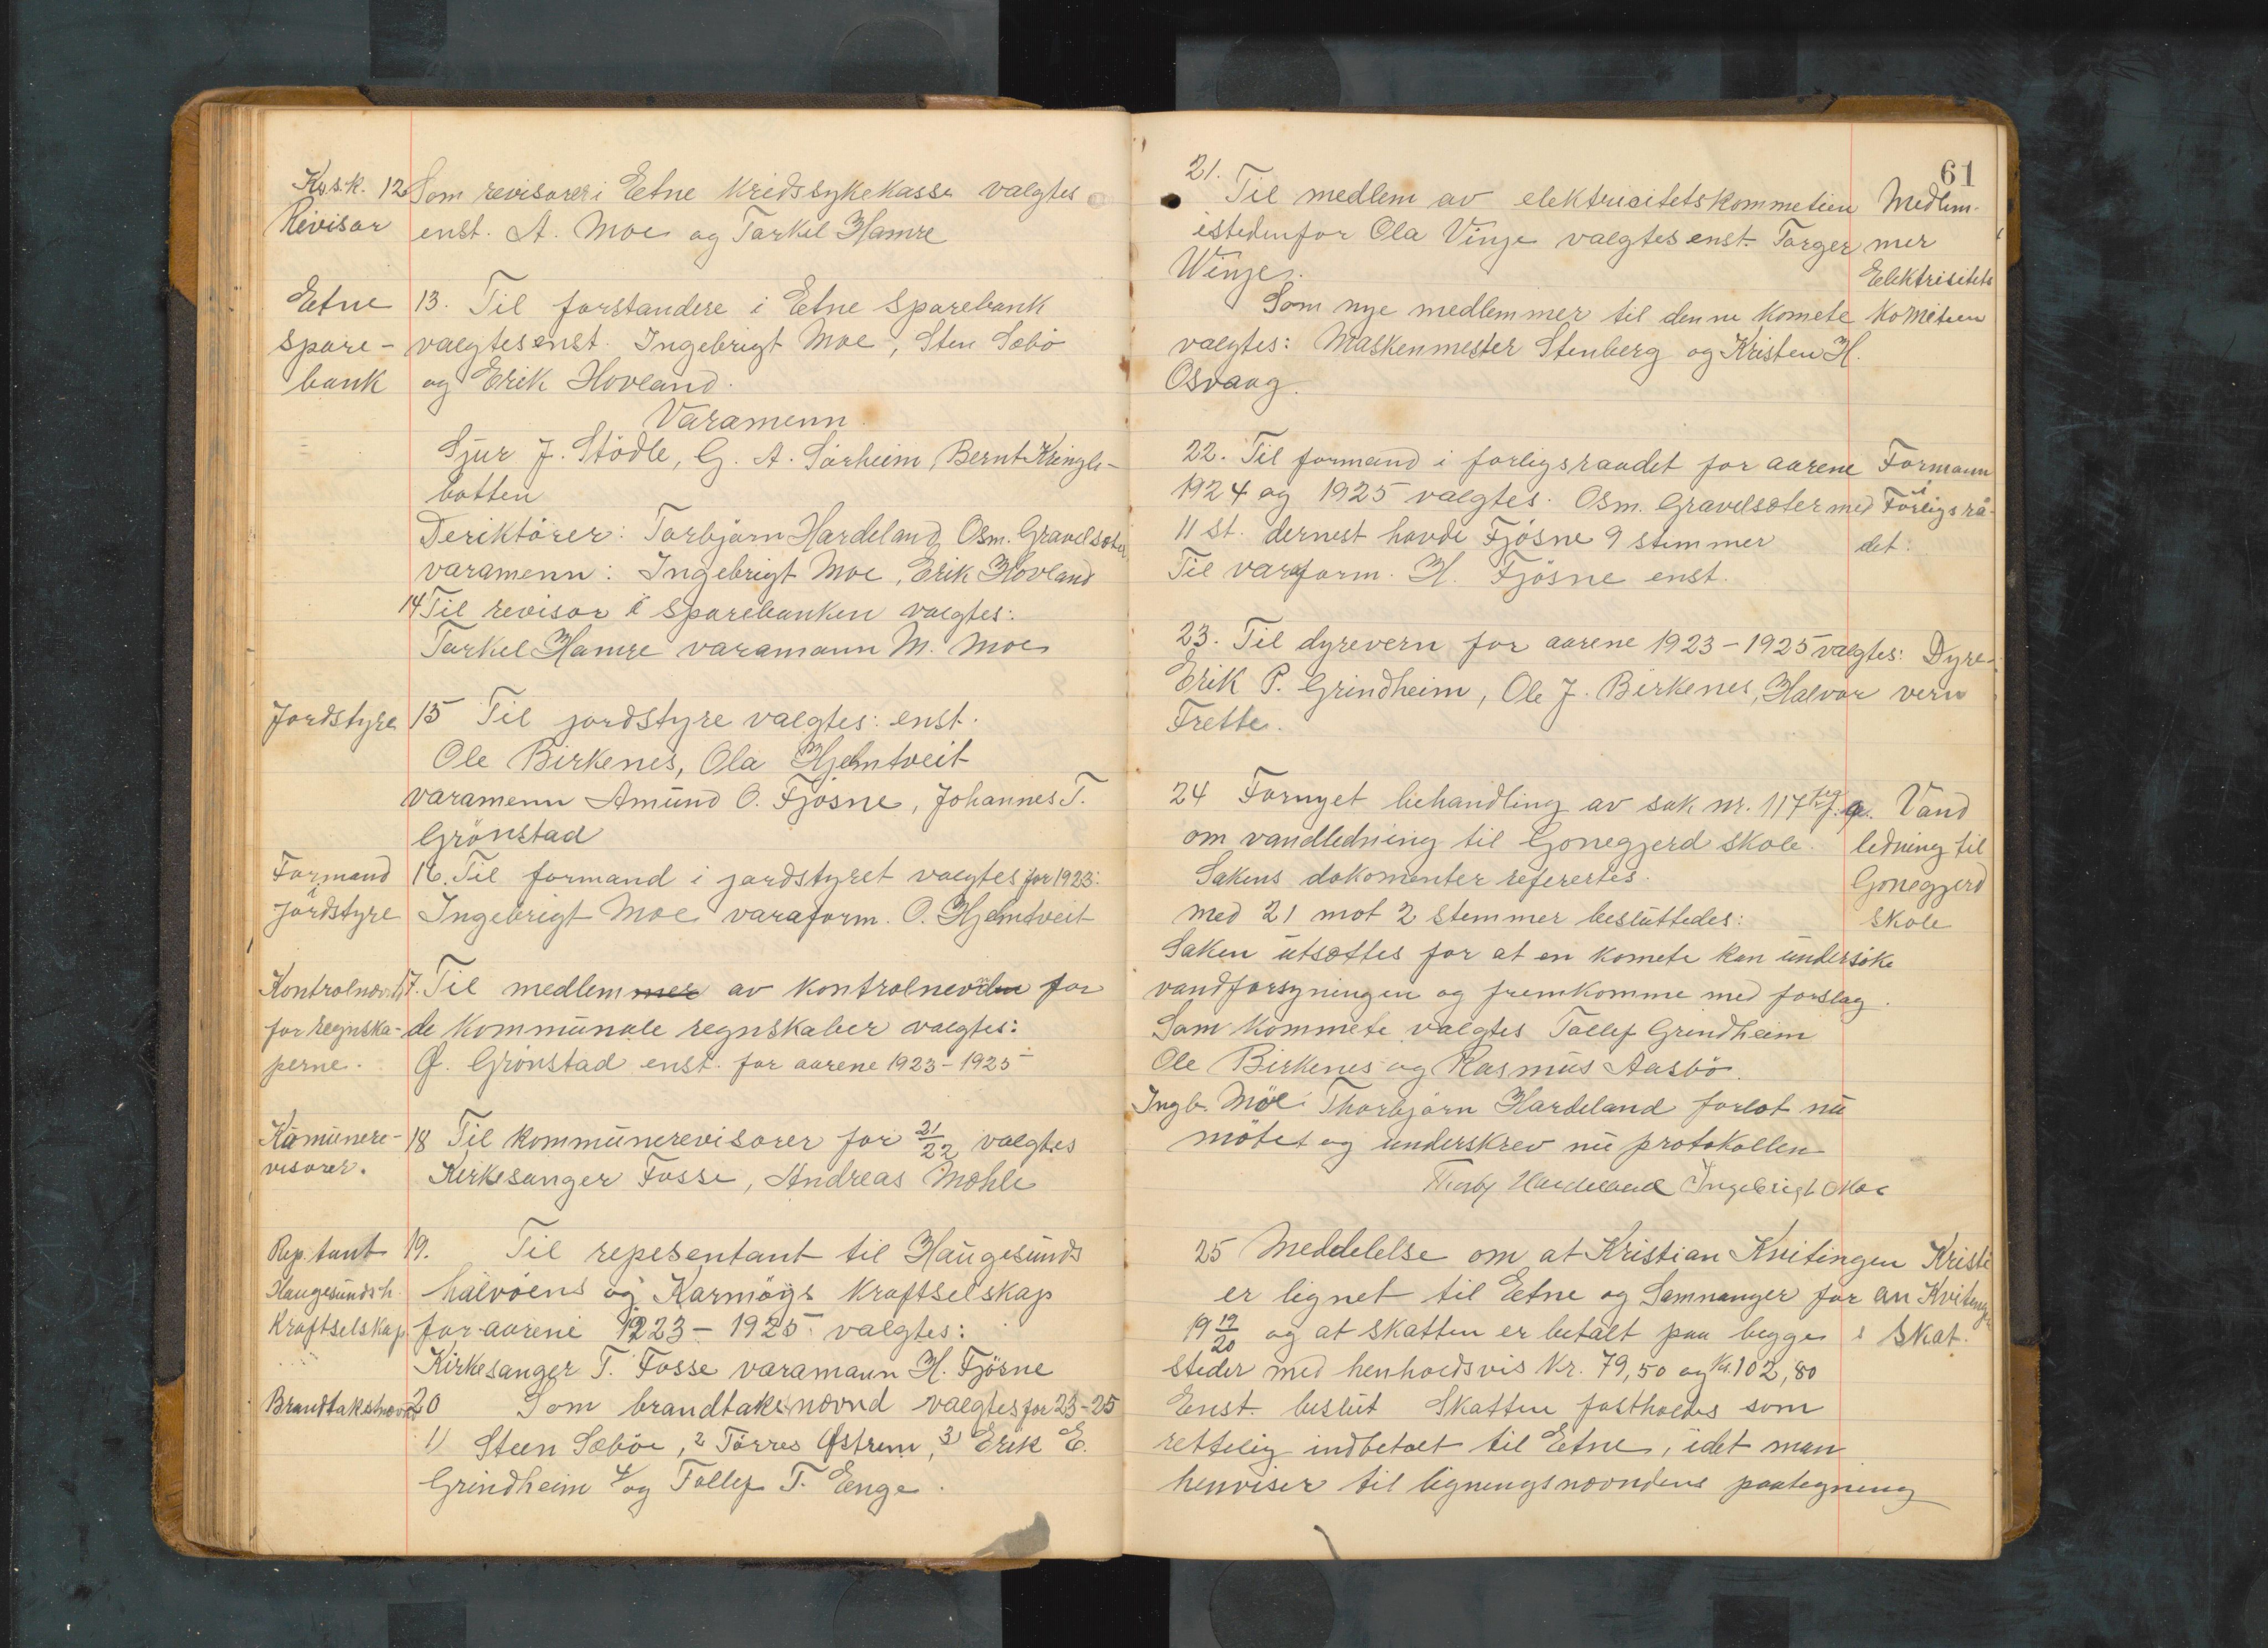 Ks.s.k. 12 Som revisorer i Etne Kredssykekasse valgtes
Revisor enst. A. Moe og Torkel Hamre
Etne 13. Til forstandere i Etne Sparebank
Spare- valgtes enst. Ingebrigt Moe, Sten Sæbö
bank og Erik Hovland.
Varamenn
Sjur J. Stödle, G. A. Sörheim, Bernt Kringle-
botten
Deriktörer: Torbjörn Hardeland, Osm. Gravelsæter
varamenn: Ingebrigt Moe, Erik Hovland
14 Til revisor i Sparebanken valgtes:
Torkel Hamre varamann M. Moe
Jordstyre 15 Til jordstyre valgtes: enst.
Ole Birkenes, Ola Hjelmtveit
varamenn Amund O. Fjösne, Johannes T.
Grönstad
Formand 16. Til formand i jordstyret valgtes for 1923:
i Jordstyre Ingebrigt Moe varaform. O. Hjelmtveit
Kontrolnævnd 17. Til medlemmer av kontrolnevden for
for regnska- de kommunale regnskaber valgtes:
perne. Ø. Grönstad enst. for aarene 1923-1925
Komunere- 18 Til kommunerevisorer for 21/22 valgtes
visorer. Kirkesanger Fosse, Andreas Mæhle
Rep. tant 19. Til repesentant til Haugesunds
Haugesunds h. halvöens og Karmöys Kraftselskap
Kraftselskap for aarene 1923-1925 valgtes:
Kirkesanger T. Fosse varamann H. Fjösne
Brandtakstnævnd 20 Som brandtakstnævnd valgtes for 23-25
1) Steen Sæböe, 2 Törres Østrem, 3) Erik E.
Grindheim 4/ og Tollef T. Enge.
61
21. Til medlem av elektricitetskommetien Medlem-
istedenfor Ola Vinje valgtes enst. Torger mer
Winje. Elektrisitets
Som nye medlemmer til denne komete Komiteen
valgtes: Maskenmester Stenberg og Kristen H.
Osvaag.
22. Til formand i forligsraadet for aarene Formann
1924 og 1925 valgtes. Osm. Gravelsæter med i Forligsrå-
11 st. dernest havde Fjösne 9 stemmer det.
Til varaform. H. Fjösne enst.
23. Til dyrevern for aarene 1923-1925 valgtes: Dyre-
Erik P. Grindheim, Ole J. Birkenes, Halvor vern
Frette.
24 Fornyet behandling av sak nr. 117 f. a. Vand
om vandledning til Gonegjerd skole. ledning til
Sakens dokomenter referertes. Gonegjerd
Med 21 mot 2 stemmer besluttedes: Skole
Saken utsættes for at en komete kan undersöke
vandforsyningen og fremkomme med forslag.
Som kommete valgtes Tollef Grindheim
Ole Birkenes og Rasmus Aasbö.
Ingb. Moe Thorbjörn Hardeland forlot nu
mötet og underskrev nu protokollen
Thorbj Hardeland Ingebrigt Moe
25 Meddelelse om at Kristian Kvitingen Kristi
er lignet til Etne og Samnanger for an Kvitinge
19 19/20 og at skatten er betalt paa begge s Skat.
steder med henholdsvis Kr. 79,50 og Kr. 102,80
Enst. beslut Skatten fastholdes som
rettelig indbetalt til Etne, idet man
henviser til ligningsnævndens paategning